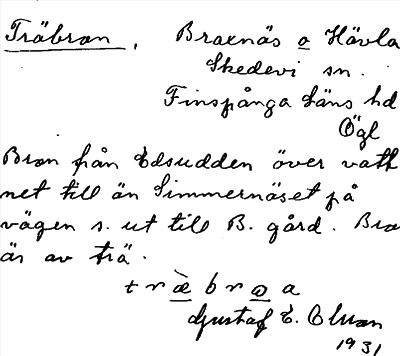 Träbron, Braxnäs o Hävla
Skedevi sn.
Finspånga läns hd
Ögl
Bron från Edsudden över vatt
net till än Simmernäset på
vägen s. ut till B. gård. Bro
är av trä.
t r æ̀ b r ω a
Gustaf E. Olson
1931